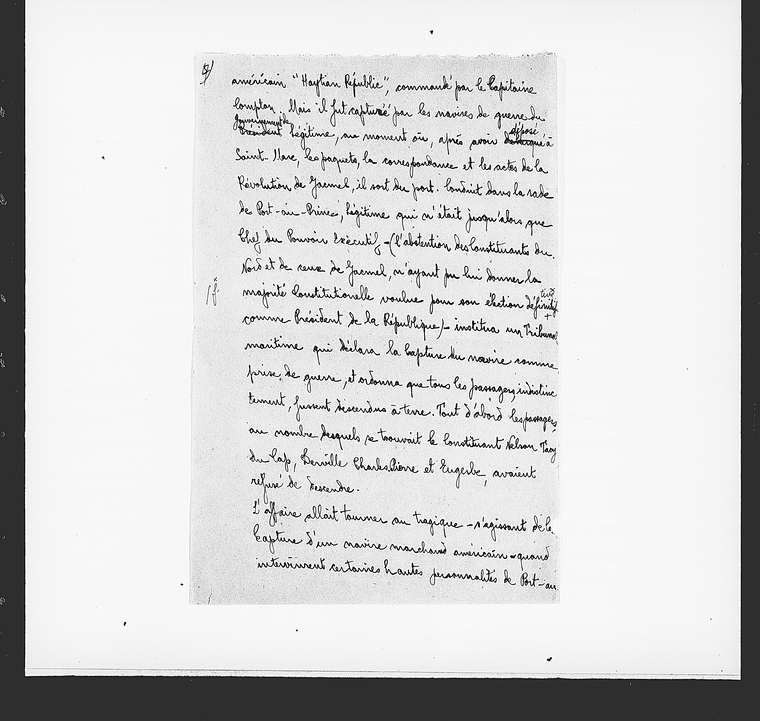 américain "Haytian République", commandé par le Capitaine
Compton. Mais il fut capturé par les navires de guerre du
Gouvernement de
Président Légitime, au moment où, après avoir déposé à
Saint-Marc, les paquets, la correspondance et les actes de la
Révolution de Jacmel, il sort du port. Conduit dans la rade
de Port-au-Prince, Légitime qui n'était jusqu'alors que
Chef du Pouvoir Exécutif - (l'abstention des Constituants du
Nord et de ceux de Jacmel, n'ayant pu lui donner la
majorité Constitutionelle voulue pour son élection définitive
comme Président de la République) - institua un Tribunal
maritime qui déclara la Capture du navire comme
prise, de guerre, et ordonna que tous les passagers, indistinc
tement, fussent descendus à terre. Tout d'abord les passagers,
au nombre desquels se trouvait le Constituant Nelson
du Cap, Derville CharlesPierre et Eugerbe, avaient
refusé de descendre.
L'affaire allait tourner au tragique - s'agissant de la
Capture d'un navire marchand américain - quand
intervinrent certaines hautes personnalités de Port-au